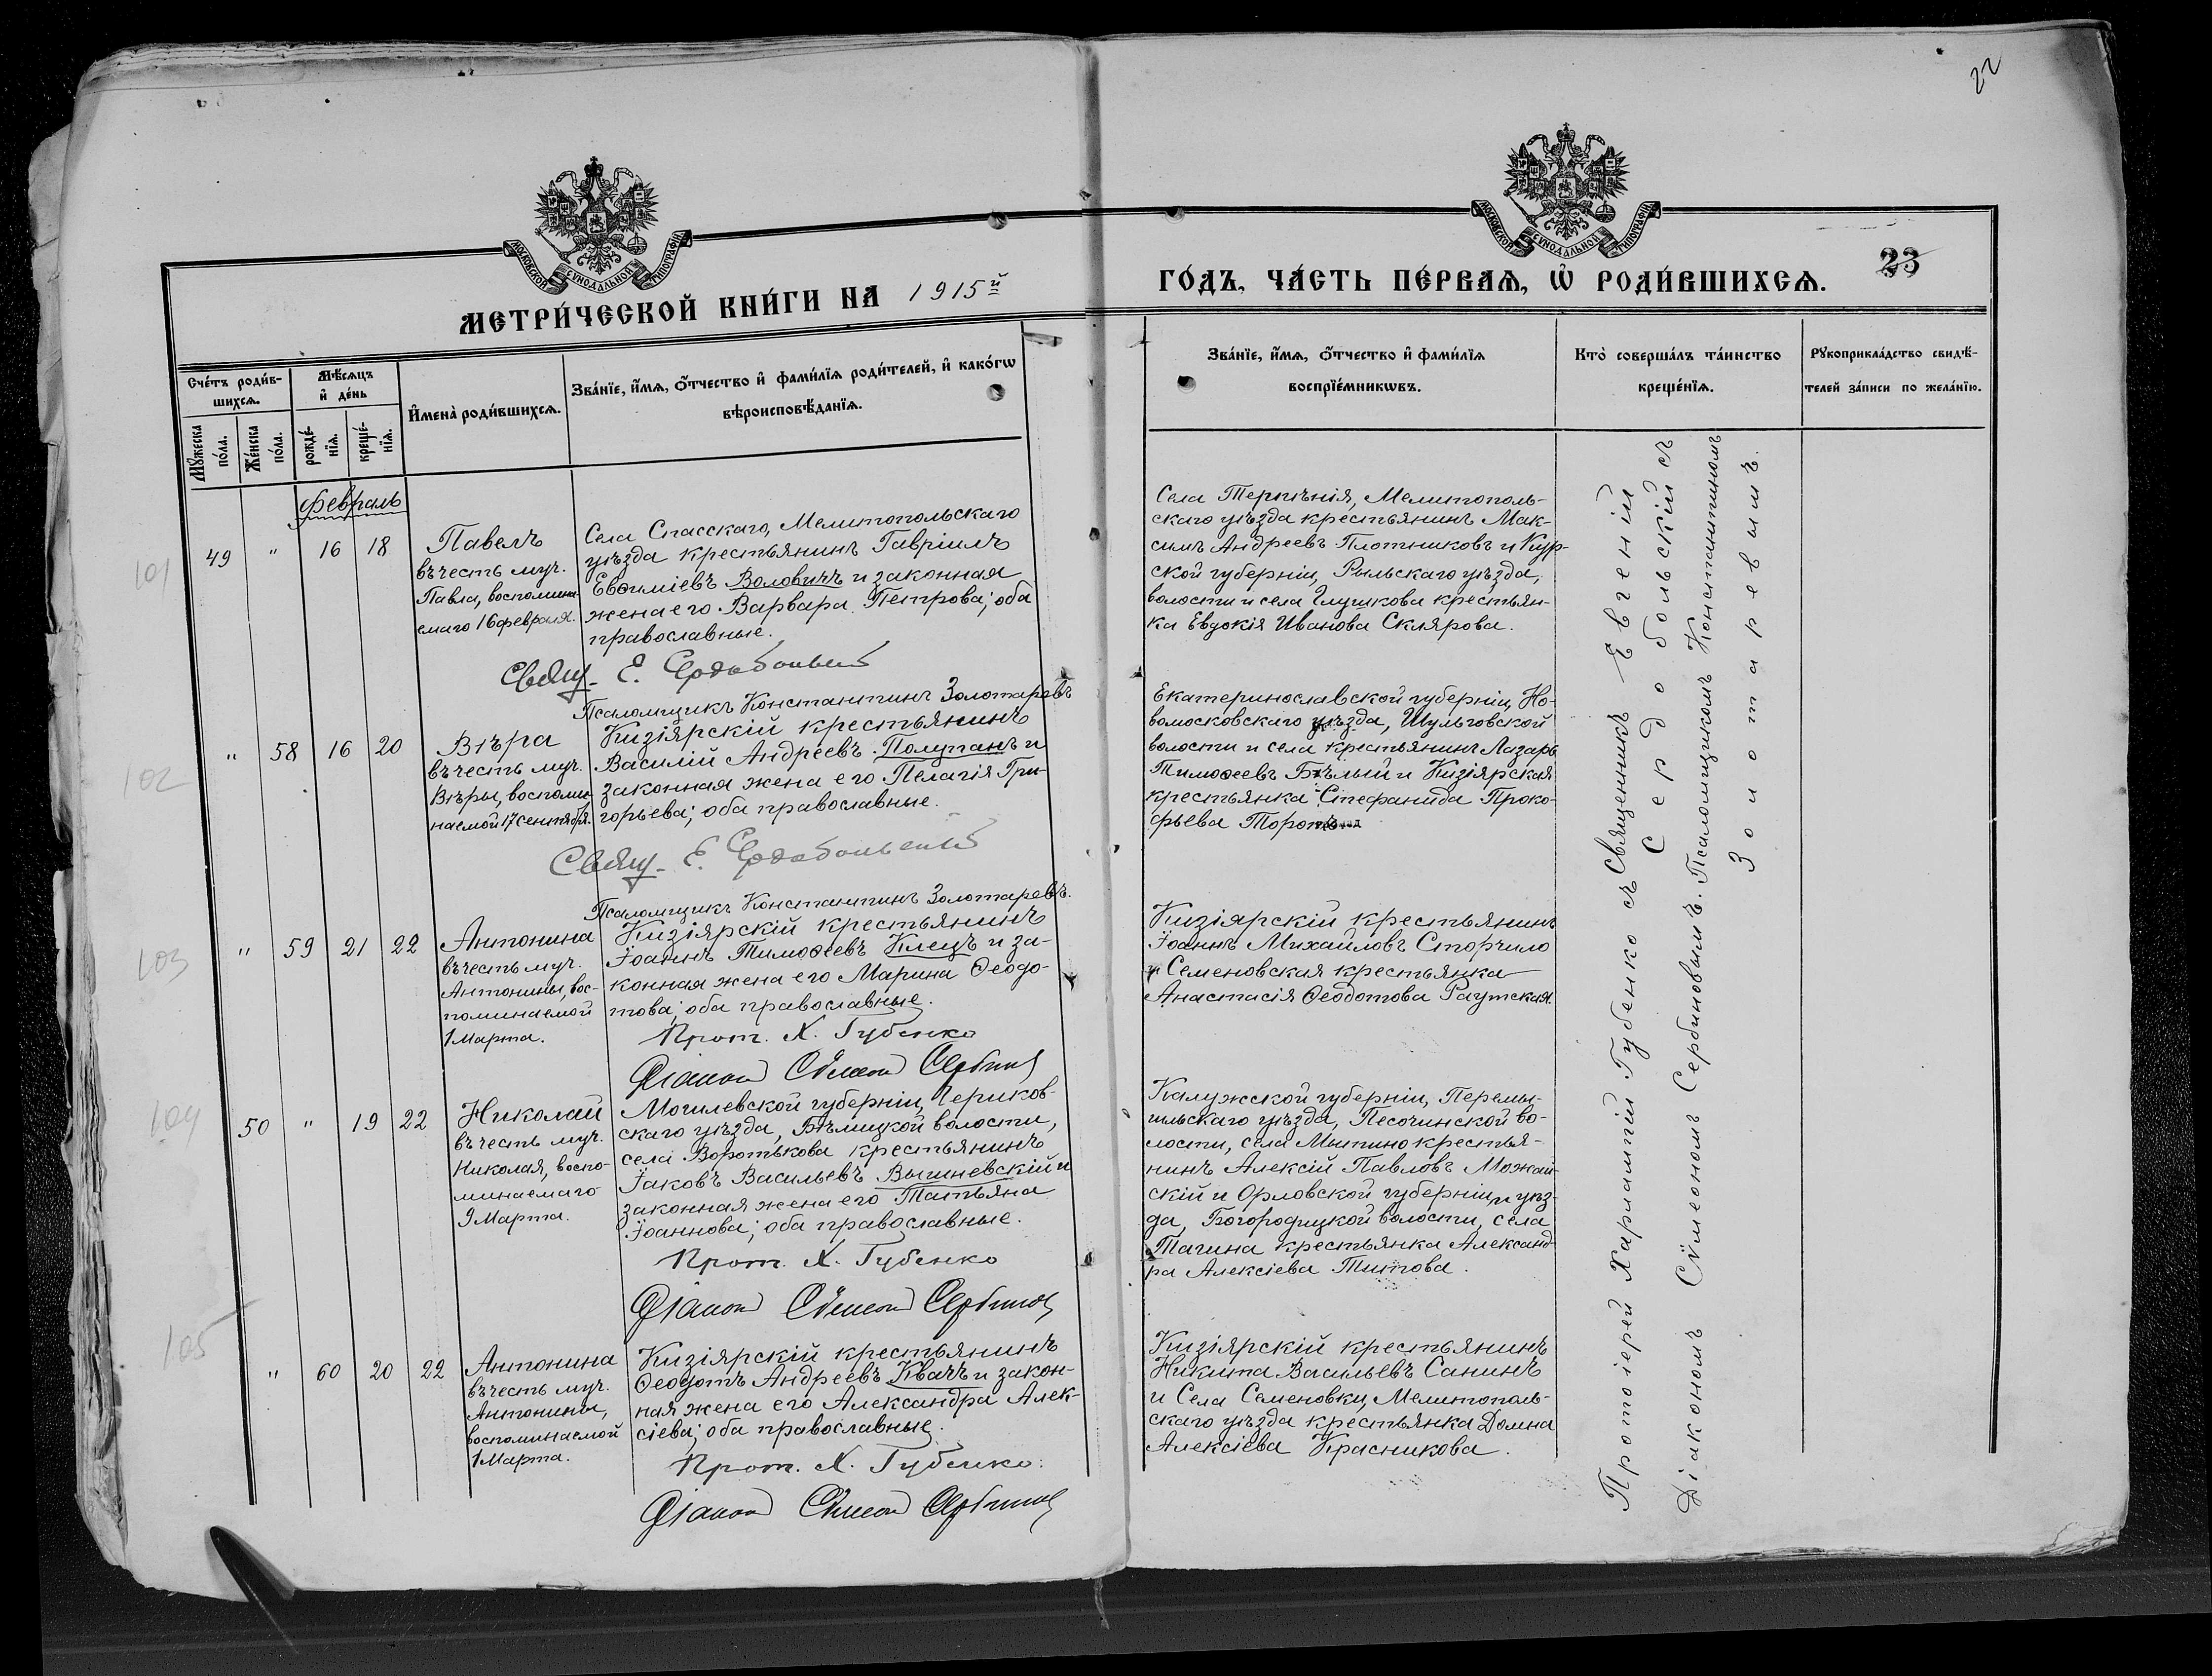 22
МОСКОВСКОЙ СѴНОДАЛЬНОЙ ТИПОГРАФІИ
МОСКОВСКОЙ СѴНОДАЛЬНОЙ ТИПОГРАФІИ
МЕТРИ́ЧЕСКОЙ КНИ́ГИ НА 1915й
ГО́ДЪ, ЧА́СТЬ ПЕ́РВАѦ, Ѡ҆ РОДИ́ВШИХСѦ.
23
Сче́тъ роди́в-
шихсѧ.
Мѣ́сѧцъ
и҆ де́нь
Мꙋ́жеска
по́ла.
Же́нска
по́ла.
рожде́-
нїѧ.
креще́-
нїѧ.
И҆мена̀ роди́вшихсѧ.
Зва́нїе, и҆́мѧ, ѻ҆́тчество и҆ фами́лїѧ роди́телей, и҆ како́гѡ
вѣроисповѣ́данїѧ.
Зва́нїе, и҆́мѧ, ѻ҆́тчество и҆ фами́лїѧ
воспрїе́мникѡвъ.
Кто̀ соверша́лъ та́инство
креще́нїѧ.
Рꙋкоприкла́дство свидѣ́-
телей за́писи по жела́нїю.
Февраль
101
49 " 16 18
Павелъ
въ честь муч.
Павла, воспомина-
емаго 16 февраля.
Села Спасскаго, Мелитопольскаго
уѣзда крестьянинъ Гавріилъ
Евѳиміевъ Воловичъ и законная
жена его Варвара Петрова; оба
православные.
Свящ. Е. Сердобольскій
Псаломщикъ Константинъ Золотаревъ
Села Терпѣнія, Мелитополь-
скаго уѣзда крестьянинъ Мак-
симъ Андреевъ Плотниковъ и Кур-
ской губерніи, Рыльскаго уѣзда,
волости и села Глушкова крестьян-
ка Евдокія Иванова Склярова.
102
" 58 16 20
Вѣра
въ честь муч.
Вѣры, воспоми-
наемой 17 сентября.
Кизіярскій крестьянинъ
Василій Андреевъ Полупанъ и
законная жена его Пелагія Гри-
горьева; оба православные.
Свящ. Е. Сердобольскій
Псаломщикъ Константинъ Золотаревъ.
Екатеринославской губерніи, Но-
вомосковскаго уѣзда, Шульговской
волости и села крестьянинъ Лазарь
Тимоѳеевъ Бѣлый и Кизіярская
крестьянка Стефанида Проко-
фьева
103
" 59 21 22
Антонина
въ честь муч.
Антонины, вос-
поминаемой
1 Марта.
Кизіярскій крестьянинъ
Іоаннъ Тимоѳеевъ Клецъ и за-
конная жена его Марина Ѳеодо-
това; оба православные.
Прот. Х. Губенко
Діаконъ Сѵмеонъ Сербиновъ
Кизіярскій крестьянинъ
Іоаннъ Михайловъ Сторчило
и Семеновская крестьянка
Анастасія Ѳеодотова Раутская.
104
50 " 19 22
Николай
въ честь муч.
Николая, воспо-
минаемаго
9 Марта.
Могилевской губерніи, Чериков-
скаго уѣзда, Бѣлицкой волости,
села Воротькова крестьянинъ
Іаковъ Васильевъ Вышневскій и
законная жена его Татьяна
Іоаннова; оба православные.
Прот. Х. Губенко
Діаконъ Сѵмеонъ Сербиновъ
Калужской губерніи, Перемы-
шльскаго уѣзда, Песочинской во-
лости, села Мытино крестья-
нинъ Алексій Павловъ Можай-
скій и Орловской губерніи, и уѣз-
да, Богородицкой волости, села
Тагина крестьянка Александ-
ра Алексіева Титова.
105
" 60 20 22
Антонина
въ честь муч.
Антонины,
воспоминаемой
1 Марта.
Кизіярскій крестьянинъ
Ѳеодотъ Андреевъ Квачъ и закон-
ная жена его Александра Алек-
сіева; оба православные.
Прот. Х. Губенко.
Діаконъ Сѵмеонъ Сербиновъ
Кизіярскій крестьянинъ
Никита Васильевъ Санинъ
и Села Семеновки, Мелитополь-
скаго уѣзда крестьянка Домна
Алексіева Красникова.
Протоіерей Харлампій Губенко съ
Діакономъ Сѵмеономъ Сербиновымъ.
Священникъ Евгеній
Сердобольскій съ
Псаломщикомъ Константиномъ
Золотаревымъ.